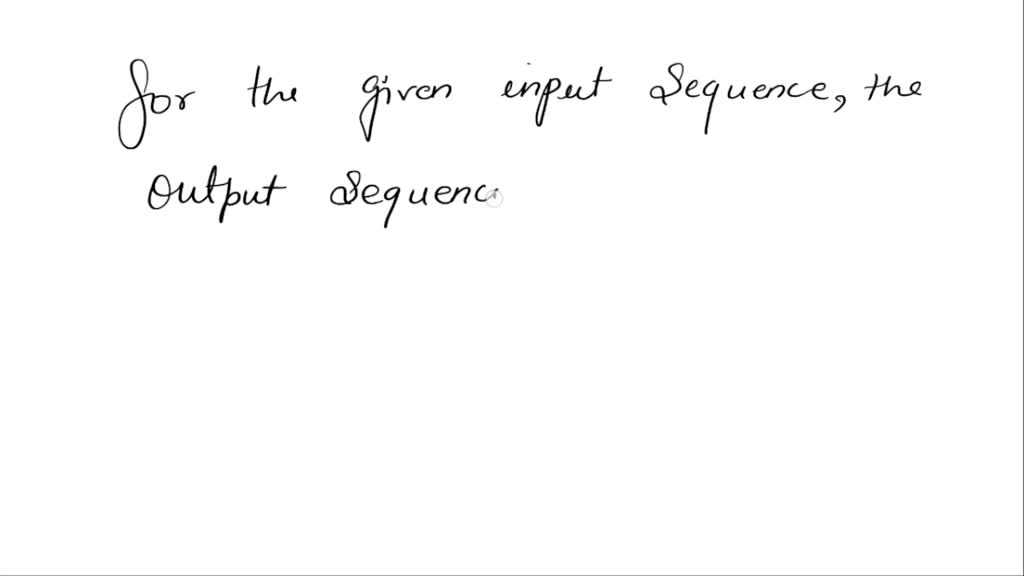 for the given input Sequence, the
Output Sequenc